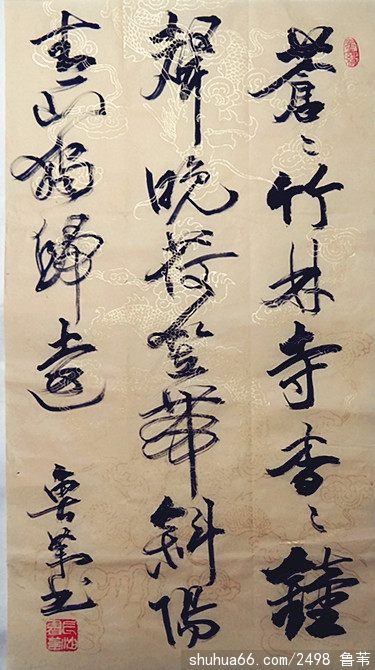 蒼〻竹林寺杳〻鐘
聲晚荷笠帶斜陽
青山獨歸遠
魯葦书
shuhua66.com/2498 鲁苇